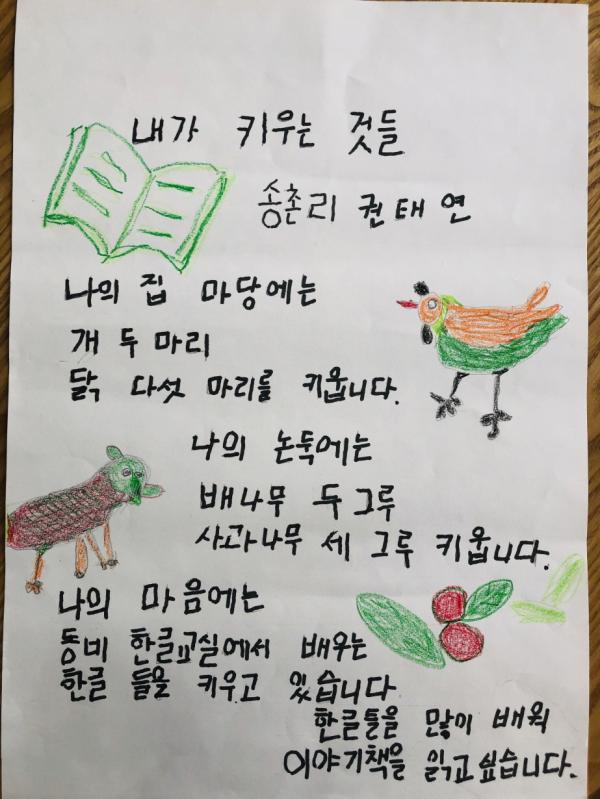 내가 키우는 것들
송촌리 권태연
나의 집 마당에는
개 두 마리
닭 다섯 마리를 키웁니다.
나의 논둑에는
배나무 두 그루
사과나무 세 그루 키웁니다.
나의 마음에는
동비 한글교실에서 배우는
한글 들을 키우고 있습니다
한글들을 많이 배워
이야기책을 읽고 싶습니다.